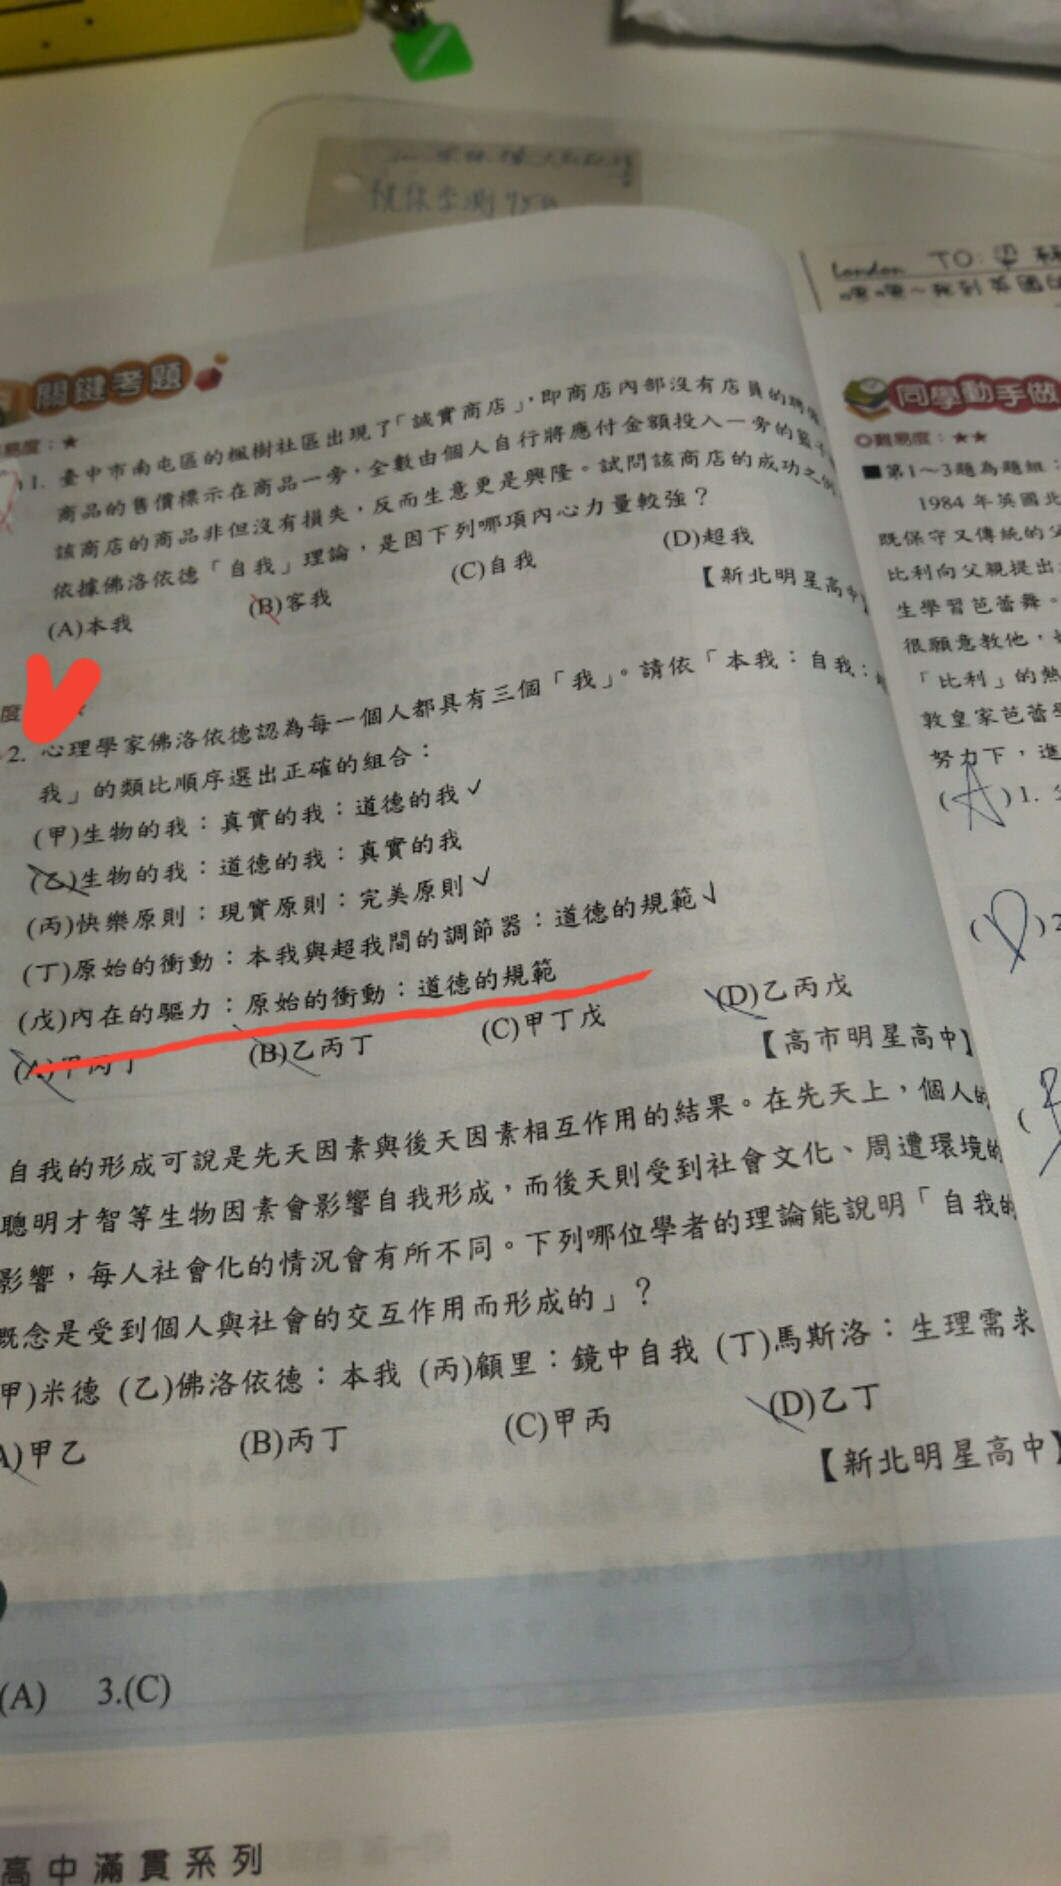 London TO:
關鍵考題
易度：★
1. 臺中市南屯區的楓樹社區出現了「誠實商店」，即商店內部沒有店員的
商品的售價標示在商品一旁，全數由個人自行將應付金額投入一旁的
該商店的商品非但沒有損失，反而生意更是興隆。試問該商店的成功之
依據佛洛依德「自我」理論，是因下列哪項內心力量較強？
(A)本我 (B)客我 (C)自我 (D)超我
【新北明星高中
度
2. 心理學家佛洛依德認為每一個人都具有三個「我」。請依「本我：自我：
我」的類比順序選出正確的組合：
(甲)生物的我：真實的我：道德的我
(乙)生物的我：道德的我：真實的我
(丙)快樂原則：現實原則：完美原則
(丁)原始的衝動：本我與超我間的調節器：道德的規範
(戊)內在的驅力：原始的衝動：道德的規範
(A)甲丙丁 (B)乙丙丁 (C)甲丁戊 (D)乙丙戊
【高市明星高中】
自我的形成可說是先天因素與後天因素相互作用的結果。在先天上，個人的
聰明才智等生物因素會影響自我形成，而後天則受到社會文化、周遭環境的
影響，每人社會化的情況會有所不同。下列哪位學者的理論能說明「自我的
概念是受到個人與社會的交互作用而形成的」？
甲)米德 (乙)佛洛依德：本我 (丙)顧里：鏡中自我 (丁)馬斯洛：生理需求
A)甲乙 (B)丙丁 (C)甲丙 (D)乙丁
【新北明星高中】
(A) 3.(C)
高中滿貫系列
同學動手做
◎難易度：★★
■第1～3題為題組：
1984 年英國北
既保守又傳統的父
比利向父親提出
生學習芭蕾舞。
很願意教他，
「比利」的熱
敦皇家芭蕾學
努力下，進
(A)1.
(D)2